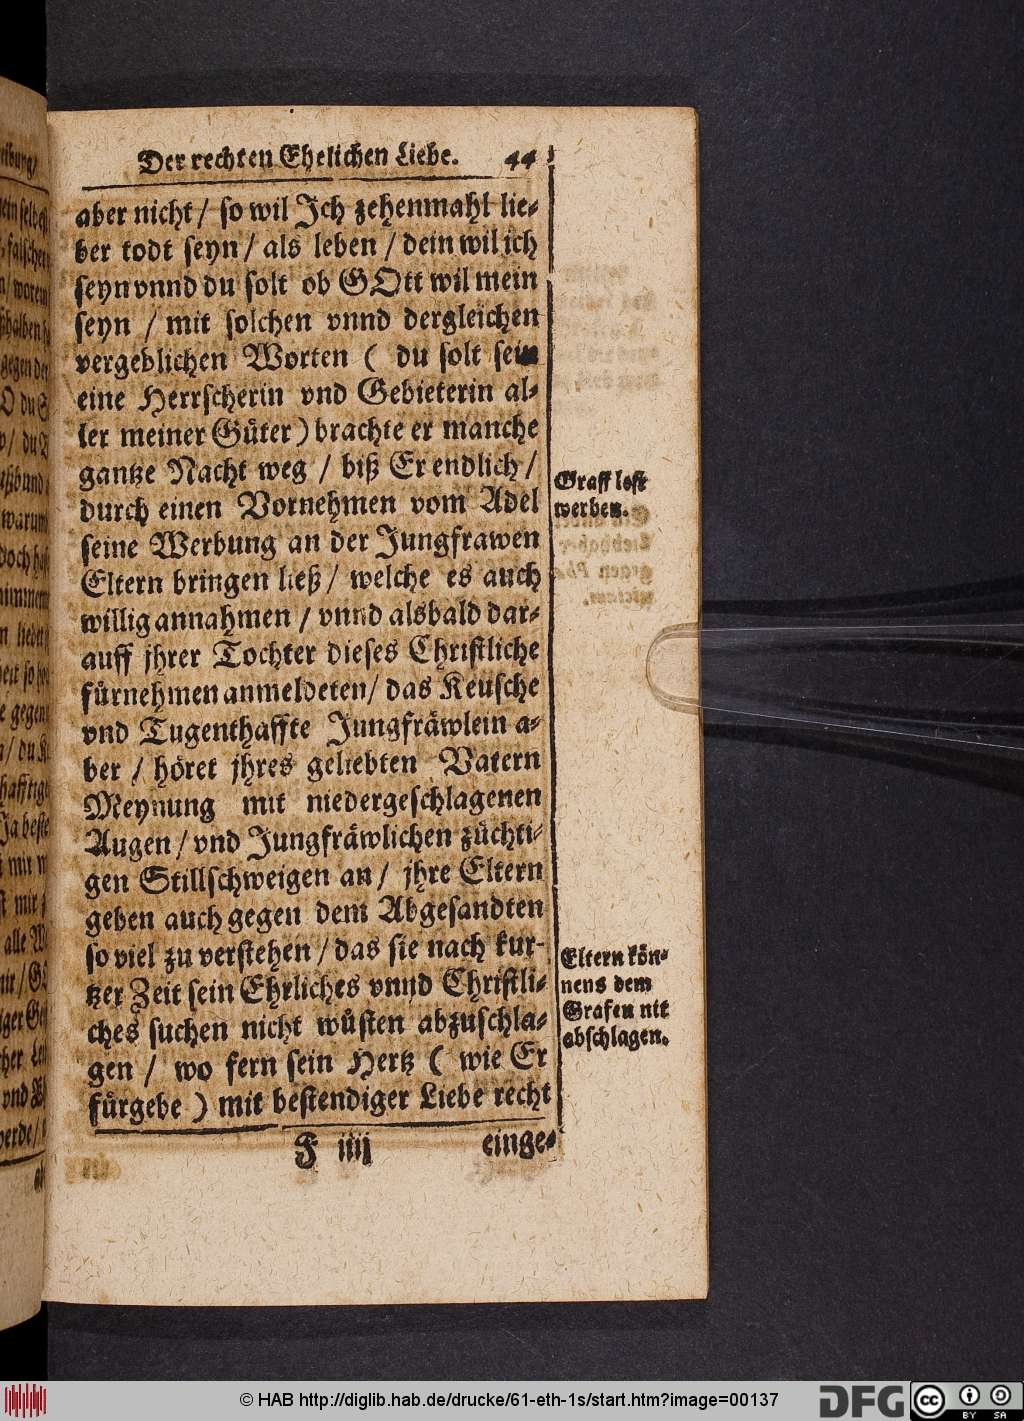 Der rechten Ehelichen Liebe. 44
aber nicht / so wil Ich zehenmahl lie-
ber todt seyn / als leben / dein wil ich
seyn vnnd du solt ob GOtt wil mein
seyn / mit solchen vnnd dergleichen
vergeblichen Worten ( du solt sein
eine Herrscherin vnd Gebieterin al-
ler meiner Güter ) brachte er manche
gantze Nacht weg / biß Er endlich /
durch einen Vornehmen vom Adel
seine Werbung an der Jungfrawen
Eltern bringen ließ / welche es auch
willig annahmen / vnnd alsbald dar-
auff jhrer Tochter dieses Christliche
fürnehmen anmeldeten / das Keusche
vnd Tugenthaffte Jungfräwlein a-
ber / höret jhres geliebten Vatern
Meynung mit niedergeschlagenen
Augen / vnd Jungfräwlichen züchti-
gen Stillschweigen an / jhre Eltern
geben auch gegen dem Abgesandten
so viel zu verstehen / das sie nach kur-
tzer Zeit sein Ehrliches vnnd Christli-
ches suchen nicht wüsten abzuschla-
gen / wo fern sein Hertz ( wie Er
fürgebe ) mit bestendiger Liebe recht
F iiij einge-
Graff lest
werben.
Eltern kön-
nens dem
Grafen nit
abschlagen.
© HAB http://diglib.hab.de/drucke/61-eth-1s/start.htm?image=00137
DFG
cc
BY SA